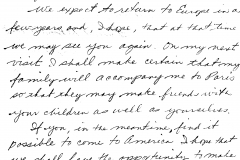 We expect to return to Europe in a
few years, and, I hope, that at that time
we may see you again. On my next
visit I shall make certain that my
family will accompany me to Paris
so that they may make friends with
your children as well as yourselves.
If you, in the meantime, find it
possible to come to America, I hope that
we shall have the opportunity to make